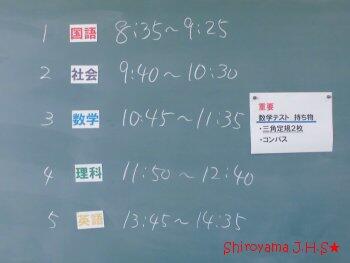 1 国語 8:35～9:25
2 社会 9:40～10:30
3 数学 10:45～11:35
4 理科 11:50～12:40
5 英語 13:45～14:35
重要
数学テスト 持ち物
・三角定規2枚
・コンパス
Shiroyama J.H.S★